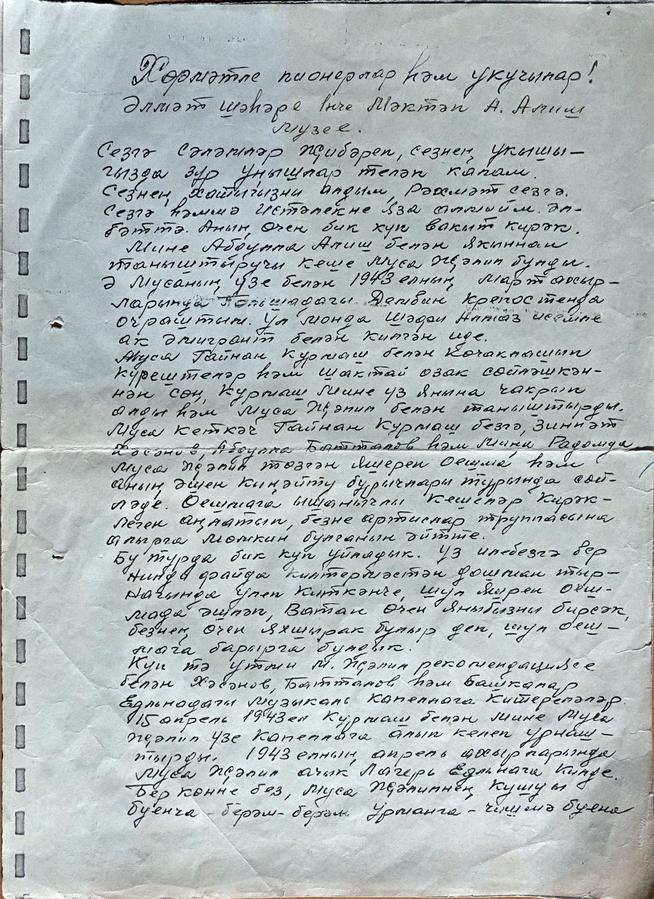 Хөрмәтле пионерлар һәм укучылар!
Әлмәт шәһәре Iнче Мәктәп А. Алиш
музее.
Сезгә сәламләр җибәреп, сезнең укышы-
гызда зур уңышлар теләп калам.
Сезнең хатыгызны алдым, Рәхмәт сезгә.
Сезгә һәммә истәлекне яза алмыйм. әл-
бәттә. Аның өчен бик күп вакыт кирәк.
Мине Абдулла Алиш белән якыннан
таныштыручы кеше Муса Җәлил булды.
Ә Мусаның үзе белән 1943 елның март ахыр-
ларында Польшадагы Демблин крепостенда
очраштым. Ул монда Шәфи Алмаз исемле
ак эмигрант белән килгән иде.
Муса Гайнан Курмаш белән кочаклашып
күрештеләр һәм шактый озак сөйләшкән-
нән соң, Курмаш мине үз янына чакрып
алды һәм Муса Җәлил белән таныштырды.
Муса киткәч Гайнан Курмаш безгә, Зиннәт
Хәсәнов, Абдулла Батталов һәм миңа Радомда
Муса Җәлил төзгән яшерен оешма һәм
аның эшен киңәйтү бурычлары турында сөй-
ләде. Оешмага ышанычлы кешеләр кирәк-
леген аңлатып, безне артистлар труппасына
алырга мөмкин булганын әйтте.
Бу турда бик күп уйладык. Үз илебезгә бер
нинди файда китермәстән дошман тыр-
нагында үлеп киткәнче, шул яшрен оеш-
мада эшләп, Ватан өчен яныбызны бирсәк,
безнең өчен яхшырак булыр деп, шул оеш-
мага барырга булдык.
Күп тә үтми М. Җәлил рекомендациясе
белән Хәсәнов, Батталов һәм башкалар
Едльнодагы музыкаль капеллага китерелделәр.
15 апрель 1943 ел Курмаш белән мине Муса
Җәлил үзе капеллага алып килеп урнаш-
тырды. 1943 елның апрель ахырларында
Муса Җәлил ачык лагерь Едльнага килде.
Бер көнне без, Муса Җәлилнең кушуы
буенча - берәм-берәм урманга - чишмә буена